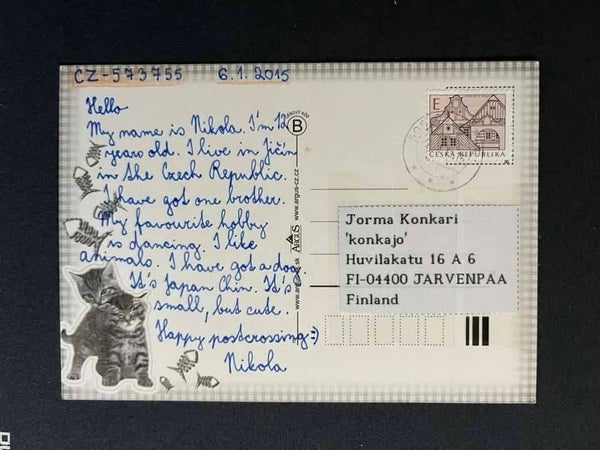 CZ-573755 6.1.2015
Hello
My name is Nikola. I'm 12
years old. I live in Jičín
in the Czech Republic.
I have got one brother.
My favourite hobby
is dancing. I like
animals. I have got a dog.
It's Japan Chin. It's
small, but cute.
Happy postcrossing :)
Nikola
B
www.argus-cz.cz
ARGUS
E
ČESKÁ REPUBLIKA
Jorma Konkari
'konkajo'
Huvilakatu 16 A 6
FI-04400 JARVENPAA
Finland